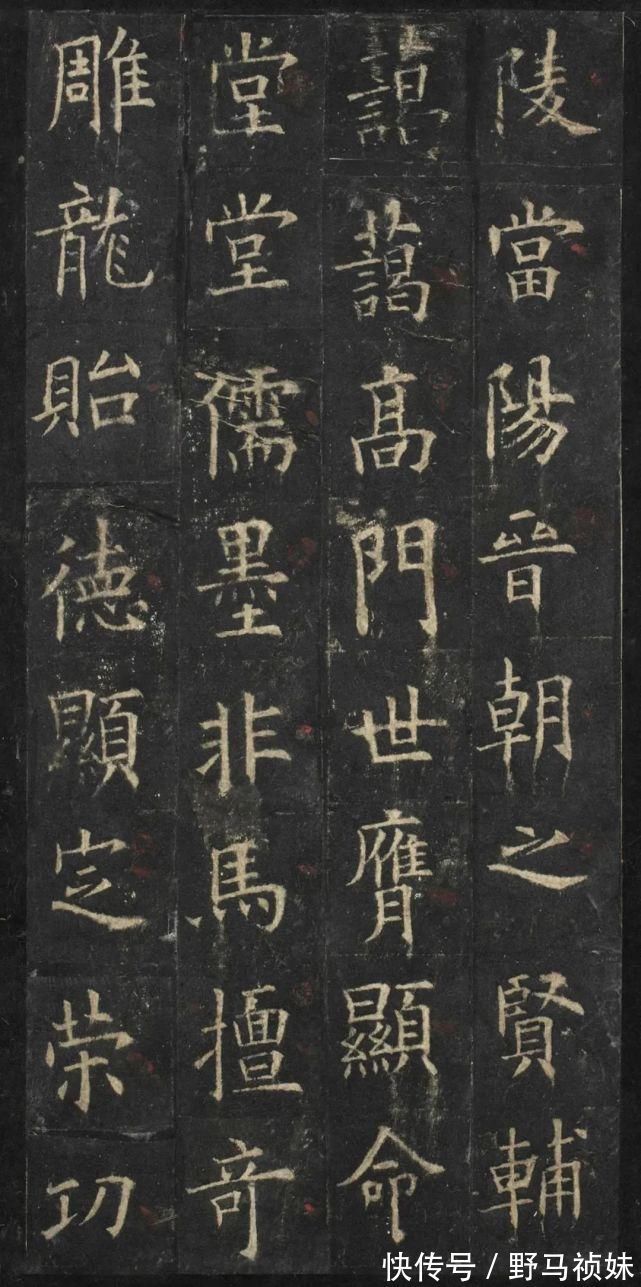 陵當陽晉朝之賢輔
藹藹髙門世膺顯命
堂堂儒墨非馬擅奇
雕龍貽德顯定荣功
快传号 / 野马祯妹